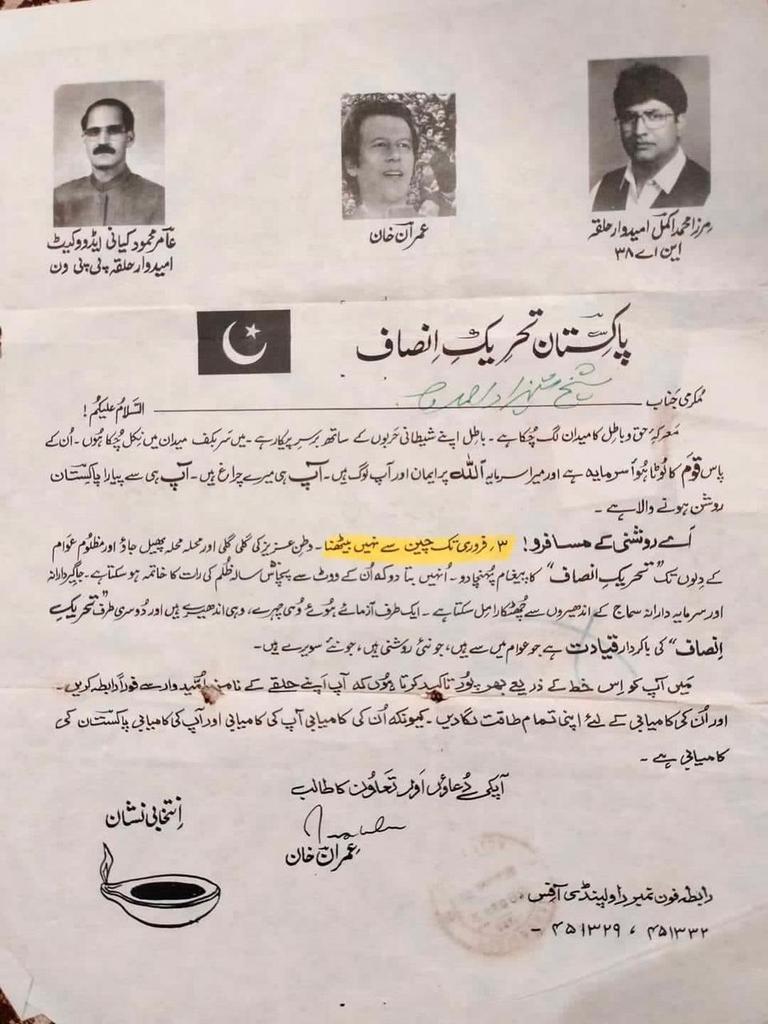 عامر محمود کیانی ایڈووکیٹ
امیدوار حلقہ پی پی ون
عمران خان
مرزا محمد اکمل امیدوار حلقہ
این اے ۳۸
پاکستان تحریکِ انصاف
مکرمی جناب شیخ السلامُ علیکم!
معرکۂ حق و باطل کا میدان لگ چُکا ہے۔ باطل اپنے شیطانی حَربوں کے ساتھ برسرِ پیکار ہے۔ میں سَر بکف میدان میں نکل چُکا ہُوں۔ اُن کے
پاس قوم کا لُوٹا ہُوا سرمایہ ہے اور میرا سرمایہ اَللہ پر ایمان اور آپ لوگ ہیں۔ آپ ہی میرے چراغ ہیں۔ آپ ہی سے پیارا پاکستان
روشن ہونے والا ہے۔
اَے روشنی کے مسافرو! ۳؍ فروری تک چین سے نہیں بیٹھنا۔ وطنِ عزیز کی گلی گلی اور محلہ محلہ پھیل جاؤ اور مظلُوم عوام
کے دِلوں تک "تحریکِ انصاف" کا پیغام پُہنچا دو۔ اُنہیں بتا دو کہ اُن کے ووٹ سے پچاس سالہ ظُلم کی رات کا خاتمہ ہو سکتا ہے۔ جاگیردارانہ
اور سرمایہ دارانہ سماج کے اندھیروں سے چُھٹکارا مِل سکتا ہے۔ ایک طرف آزمائے ہُوئے وہی چہرے، وہی اندھیرے ہیں اور دُوسری طرف "تحریکِ
اِنصاف" کی باکردار قیادت ہے جو عوام میں سے ہیں، جو نئی روشنی ہیں، جو نئے سویرے ہیں۔
مَیں آپ کو اِس خط کے ذریعے بھرپُور تاکید کرتا ہُوں کہ آپ اَپنے حلقے کے نامزد اُمّیدوار سے فوراً رابطہ کریں۔
اور اُن کی کامیابی کے لئے اپنی تمام طاقت لگا دیں۔ کیونکہ اُن کی کامیابی آپ کی کامیابی اور آپ کی کامیابی پاکستان کی
کامیابی ہے۔
آپکی دُعاؤں اَور تَعاون کا طالب
عِمران خان
اِنتخابی نشان
رابطہ فون نمبر راولپنڈی آفس
۴۵۱۳۳۲ ، ۴۵۱۳۲۹ -